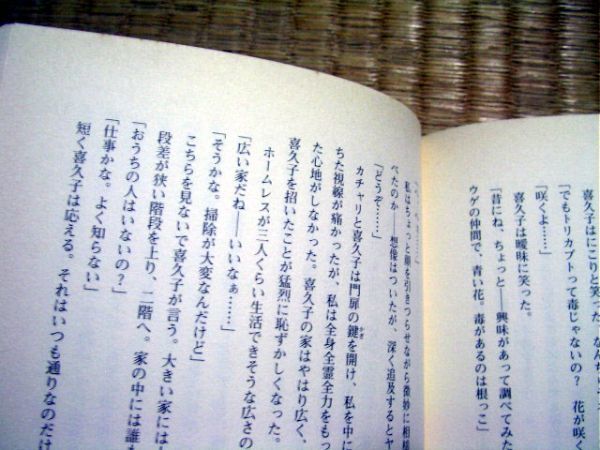 喜久子はにこりと笑った。なんち
「でもトリカブトって毒じゃないの？　花が咲く
「咲くよ……」
喜久子は曖昧に笑った。
「昔にね、ちょっと――興味があって調べてみた
ウゲの仲間で、青い花。毒があるのは根っこ」
私はちょっと頰を引きつらせながら微妙に相槌
べたのか――想像はついたが、深く追及するとヤ
「どうぞ……」
カチャリと喜久子は門扉の鍵を開け、私を中に
ちた視線が痛かったが、私は全身全霊全力をもっ
た心地がしなかった。喜久子の家はやはり広く、
喜久子を招いたことが猛烈に恥ずかしくなった。
ホームレスが三人くらい生活できそうな広さの
「広い家だね――いいなぁ……」
「そうかな。掃除が大変なんだけど」
こちらを見ないで喜久子が言う。大きい家には
段差が狭い階段を上り、二階へ。家の中には誰も
「おうちの人はいないの？」
「仕事かな。よく知らない」
短く喜久子は応える。それはいつも通りなのだけ